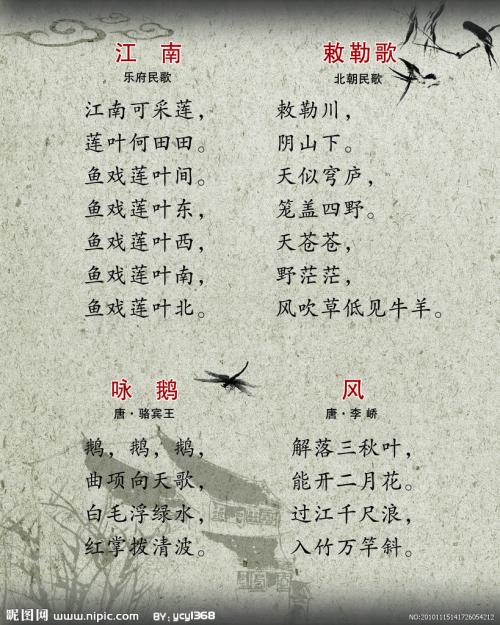 江 南
乐府民歌
江南可采莲，
莲叶何田田。
鱼戏莲叶间。
鱼戏莲叶东，
鱼戏莲叶西，
鱼戏莲叶南，
鱼戏莲叶北。
敕勒歌
北朝民歌
敕勒川，
阴山下。
天似穹庐，
笼盖四野。
天苍苍，
野茫茫，
风吹草低见牛羊。
咏 鹅
唐·骆宾王
鹅，鹅，鹅，
曲项向天歌，
白毛浮绿水，
红掌拨清波。
风
唐·李 峤
解落三秋叶，
能开二月花。
过江千尺浪，
入竹万竿斜。
昵图网 www.nipic.com BY: ycyl368
NO:20101115141726054212